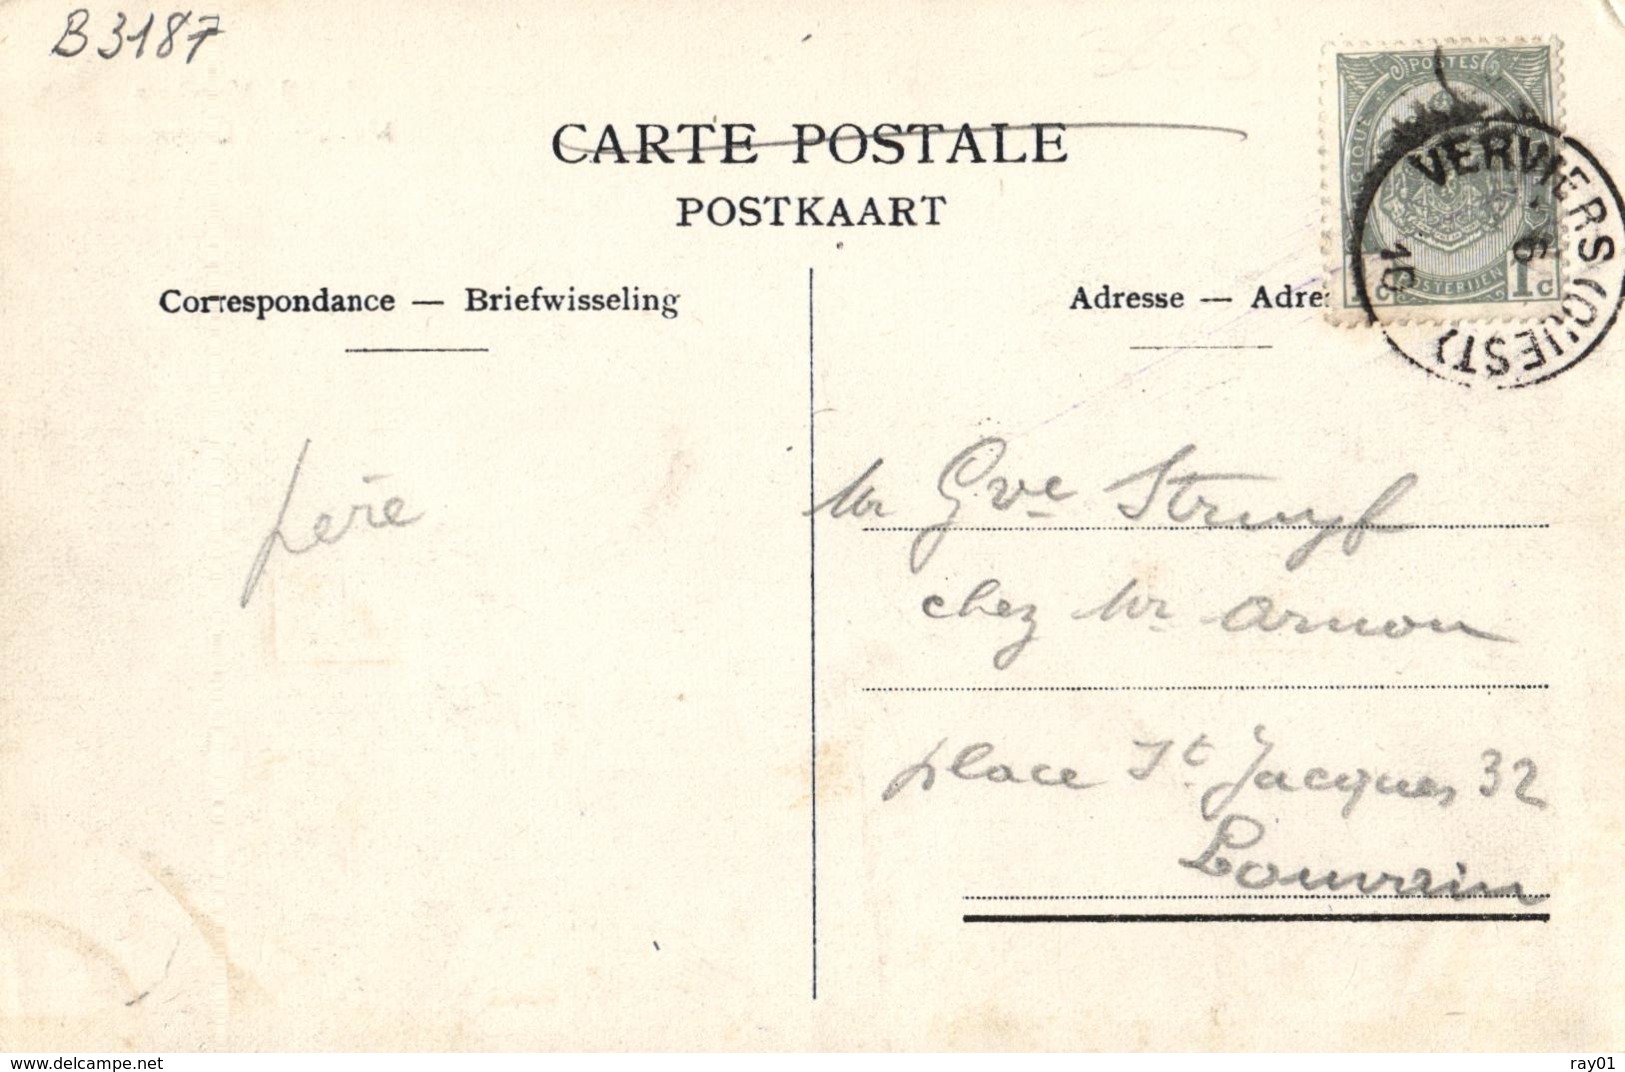 B3187
CARTE POSTALE
POSTKAART
Correspondance — Briefwisseling
Adresse — Adre
POSTES
POSTERIJEN
1c 1c
VERVIERS (OUEST)
père
Mr Gve Struyf
chez Mr Arnon
place St Jacques 32
Louvain
delcampe.net
ray01